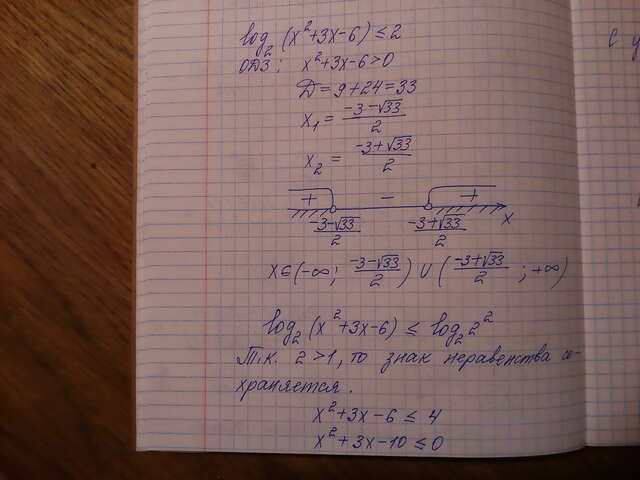 log₂ (x²+3x-6) ≤ 2
ОДЗ: x²+3x-6>0
Д=9+24=33
x₁ = (-3-√33)/2
x₂ = (-3+√33)/2
+ - +
(-3-√33)/2 (-3+√33)/2 x
x∈(-∞; (-3-√33)/2) ∪ ((-3+√33)/2 ; +∞)
log₂ (x²+3x-6) ≤ log₂ 2²
Т.к. 2>1, то знак неравенства со-
храняется.
x²+3x-6 ≤ 4
x²+3x-10 ≤ 0